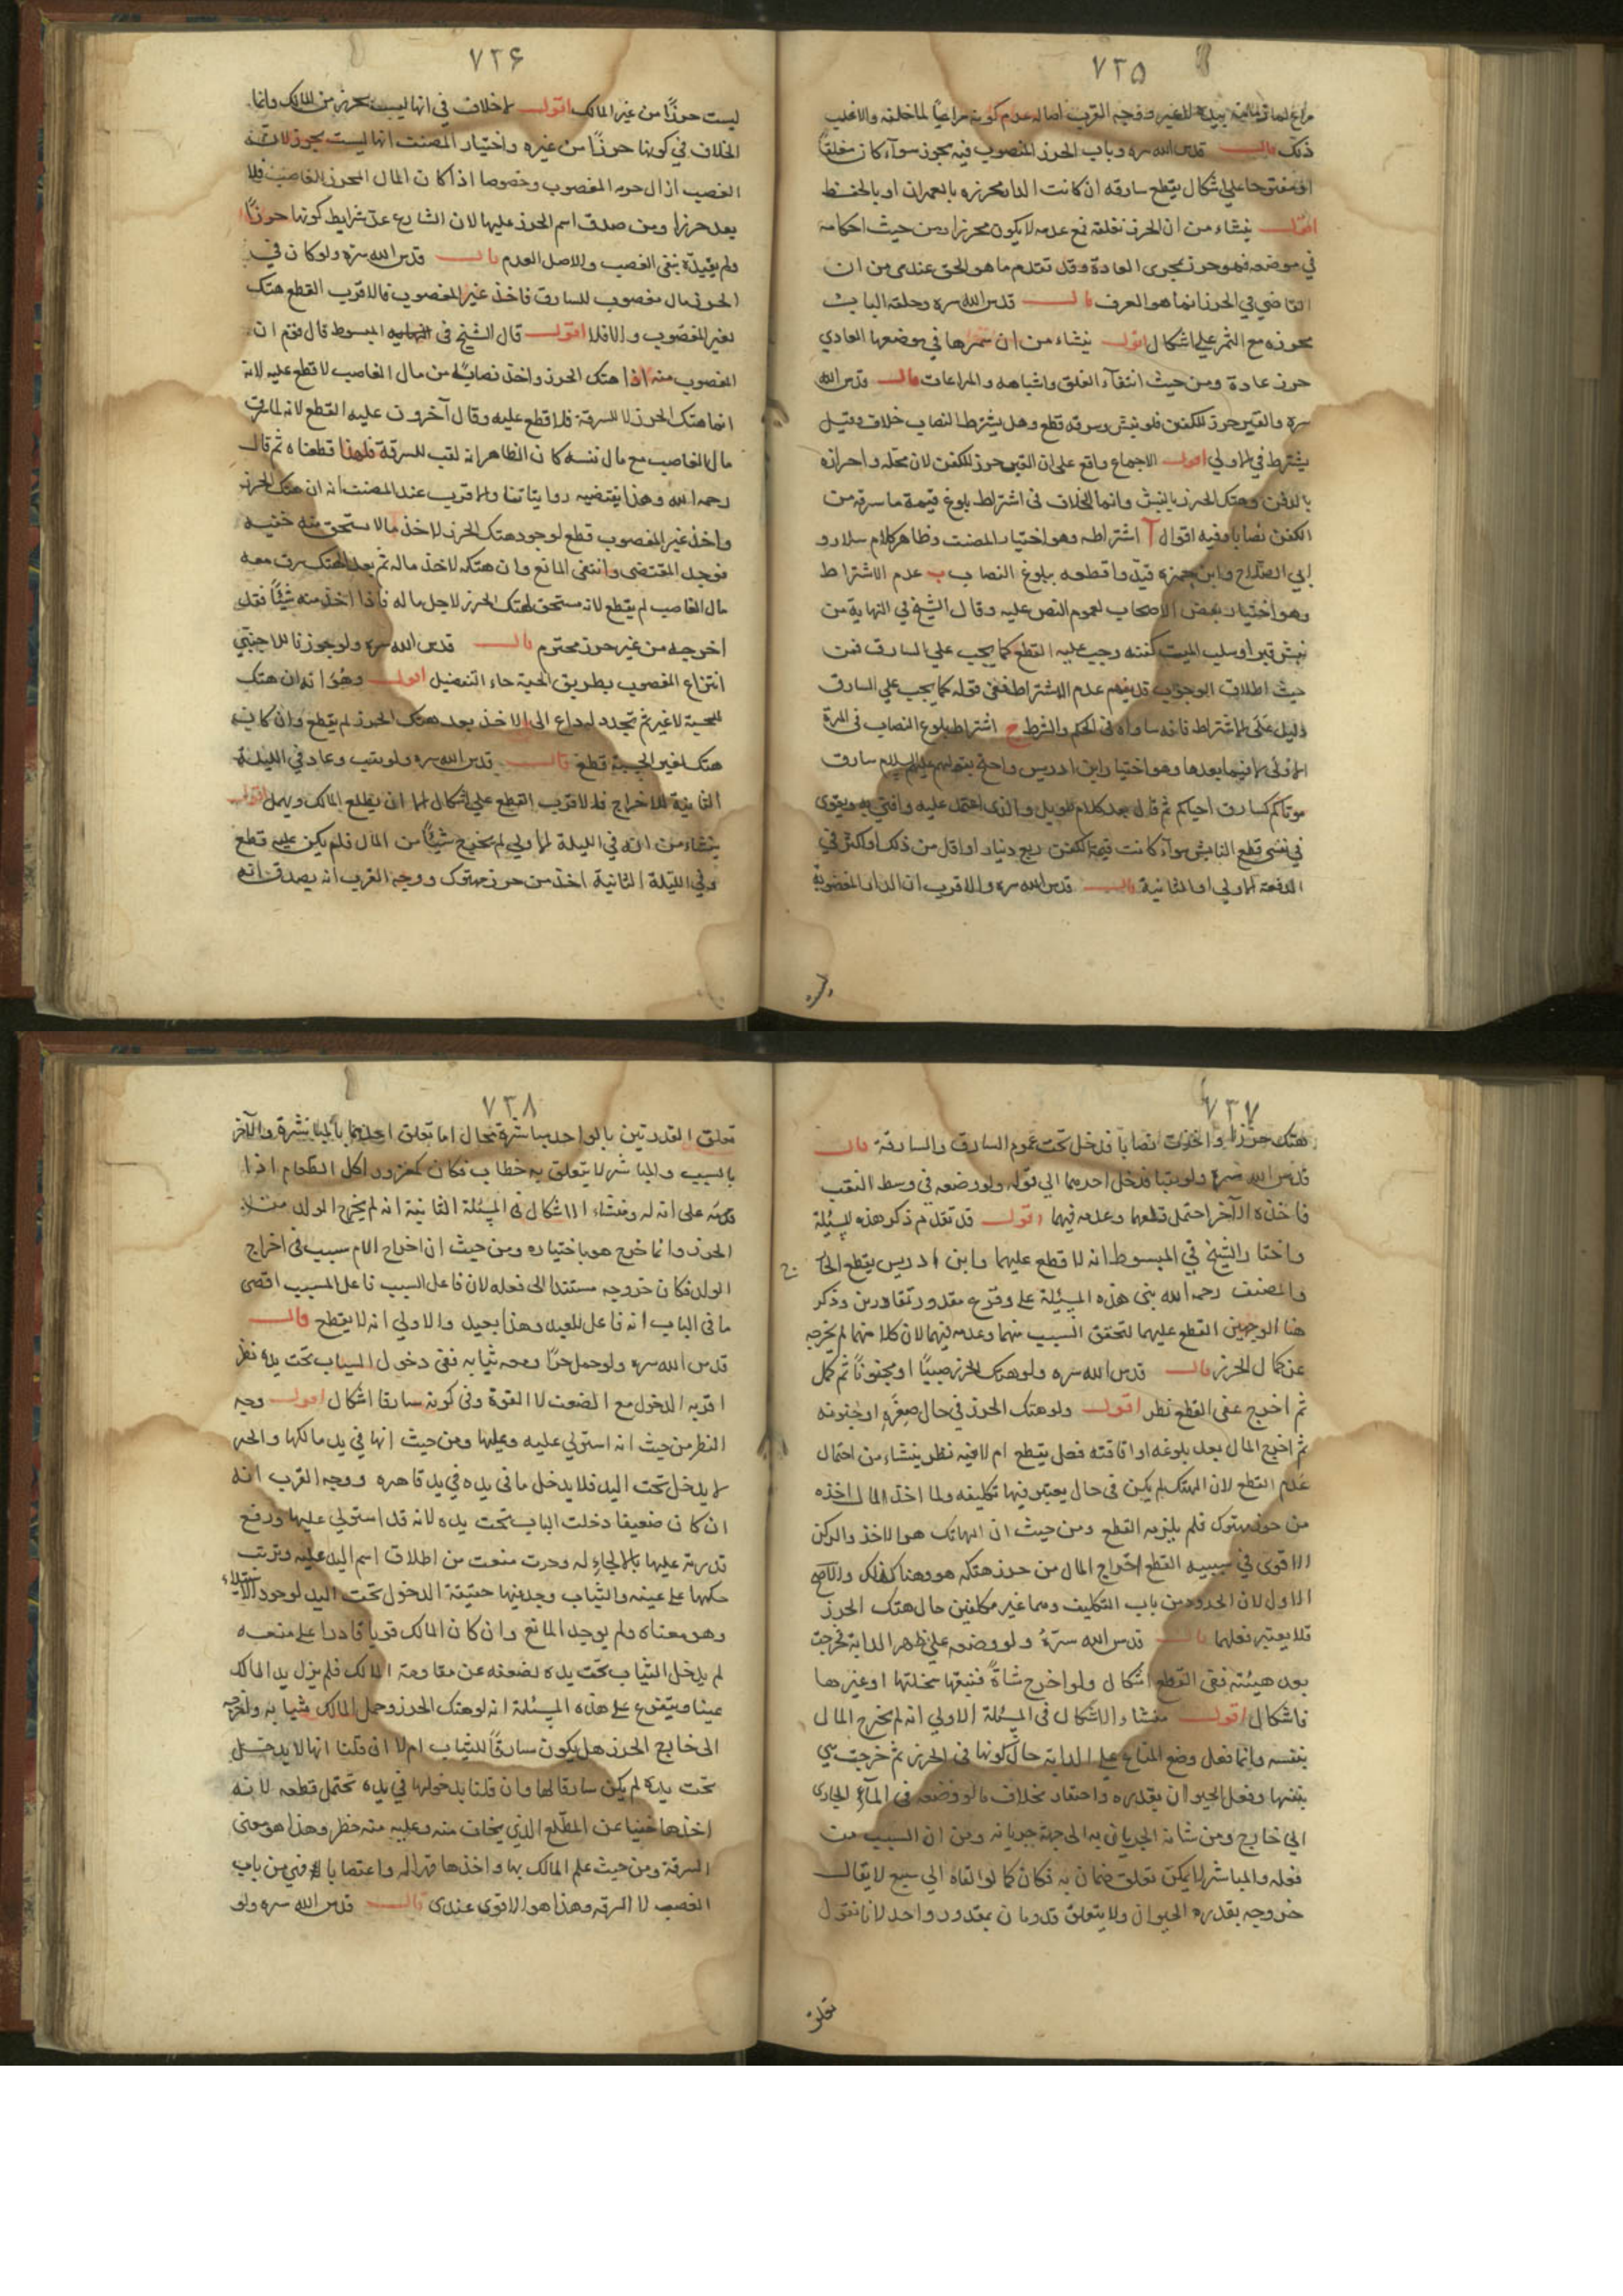 ٧٣٥
مراع لما في يده للغير ووجه القرب اصالة عدم كونه مراعيا لما خلفه والاغلب
ذلك قال قدس الله سره وباب الحرز المنصوب فيه محرز سواء كان مغلقا
او مفتوحا على اشكال يقطع سارقه ان كانت الدار محرزة بالعمران او بالحفظ
اقول ينشاء من ان الحرز بغلقه فمع عدمه لا يكون محرزا ومن حيث احكامه
في موضعه فهو حرز بمجرى العادة وقد تقدم ما هو الحق عندى من ان
القاضي في الحرز انما هو العرف قال قدس الله سره وحلقة الباب
محرزه مع الثمر على اشكال اقول ينشاء من ان سمرها في موضعها العادي
حرز عادة ومن حيث انتفاء الغلق واشباهه والمراعات قال قدس الله
سره والقبر حرز للكفن فلو نبش وسرقه قطع وهل يشترط النصاب خلاف وقيل
يشترط في الاولى اقول الاجماع واقع على ان القبر حرز للكفن لان محله واحرازه
بالدفن وهتك الحرز بالنبش وانما الخلاف في اشتراط بلوغ قيمة ما سرقه من
الكفن نصابا وفيه اقوال آ اشتراطه وهو اختيار المصنف وظاهر كلام سلار و
ابي الصلاح وابن حمزه قيدوا قطعه ببلوغ النصاب ب عدم الاشتراط
وهو اختيار بعض الاصحاب لعموم النص عليه وقال الشيخ في النهاية من
نبش قبرا وسلب الميت كفنه وجب عليه القطع كما يجب على السارق فمن
حيث اطلاق الوجوب قد يفهم عدم الاشتراط ففي قوله كما يجب على السارق
دليل على الاشتراط فانه ساواه في الحكم والشرط ج اشتراط بلوغ النصاب في المرة
الاولى لا فيما بعدها وهو اختيار ابن ادريس واحتج بقولهم عليهم السلام سارق
موتاكم كسارق احياكم ثم قال بعد كلام طويل والذى اعتمد عليه وافتي به ويقوى
في نفسي قطع النباش سواء كانت قيمة الكفن ربع دينار او اقل من ذلك او اكثر في
الدفعة الاولى او الثانية قال قدس الله سره والاقرب ان الدار المغصوبة
ليست
٧٣٦
ليست حرزا من غير المالك اقول لا خلاف في انها ليست بحرز من المالك وانما
الخلاف في كونها حرزا من غيره واختيار المصنف انها ليست بحرز لان
الغصب ازال حرمة المغصوب وخصوصا اذا كان المال المحرز للغاصب فلا
يعد حرزا ومن صدق اسم الحرز عليها لان الشارع عد شرايط كونها حرزا
ولم يقيده بنفى الغصب والاصل العدم قال قدس الله سره ولو كان في
الحرز مال مغصوب للسارق فاخذ غير المغصوب فالاقرب القطع ان هتك
لغير المغصوب والا فلا اقول قال الشيخ في المبسوط قال قوم ان
المغصوب منه اذا هتك الحرز واخذ نصابا من مال الغاصب لا قطع عليه لانه
انما هتك الحرز لا للسرقة فلا قطع عليه وقال آخرون عليه القطع لانه لما سرق
مال الغاصب مع مال نفسه كان الظاهر انه نقب للسرقة فلهذا قطعناه ثم قال
رحمه الله وهذا يقتضيه رواياتنا والاقرب عند المصنف انه ان هتك الحرز
واخذ غير المغصوب قطع لوجود هتك الحرز لاخذ مالا يستحق منه خفية
فوجد المقتضى وانتفى المانع وان هتكه لاخذ ماله ثم بعد الهتك سرق معه
مال الغاصب لم يقطع لانه مستحق لهتك الحرز لاجل ماله فاذا اخذ منه شيئا فقد
اخرجه من غير حرز محترم قال قدس الله سره ولو جوزنا للاجنبي
انتزاع المغصوب بطريق الحسبة جاء التفصيل اقول وهو انه ان هتك
للحسبة لا غير ثم تجدد له داع الى الاخذ بعد هتك الحرز لم يقطع وان كان
هتك لغير الحسبة قطع قال قدس الله سره ولو نقب وعاد في الليلة
الثانية للاخراج فالاقرب القطع على اشكال الا ان يطلع المالك ويهمل اقول
ينشاء من انه في الليلة الاولى لم يخرج شيئا من المال فلم يكن عليه قطع
وفي الليلة الثانية اخذ من حرز مهتوك ووجه القرب انه يصدق انه
٧٣٧
هتك حرزا واخذت نصابا فدخل تحت عموم السارق والسارقة قال
قدس الله سره ولو نقبا فدخل احدهما الى قوله ولو وضعه في وسط النقب
فاخذه الآخر احتمل قطعهما وعدمه فيهما اقول قد تقدم ذكر هذه المسئلة
واختار الشيخ في المبسوط انه لا قطع عليهما وابن ادريس يقطع الخارج
والمصنف رحمه الله بنى هذه المسئلة على وقوع مقدور بقادرين وذكر
هنا الوجهين القطع عليهما لتحقق السبب منهما وعدمه فيهما لان كلا منهما لم يخرجه
عن كمال الحرز قال قدس الله سره ولو هتك الحرز صبيا او مجنونا ثم كمل
ثم اخرج ففى القطع نظر اقول ولو هتك الحرز في حال صغره او جنونه
ثم اخرج المال بعد بلوغه او افاقته فهل يقطع ام لا فيه نظر ينشاء من احتمال
عدم القطع لان المهتك لم يكن في حال يعتبر فيها تكليفه ولما اخذ المال اخذه
من حرز مهتوك فلم يلزمه القطع ومن حيث ان الهاتك هو الاخذ والركن
الاقوى في سببيه القطع اخراج المال من حرز هتكه هو وهنا كذلك والاصح
الاول لان الحدود من باب التكليف وهما غير مكلفين حال هتك الحرز
فلا يعتبر فعلهما قال قدس الله سره ولو وضعه على ظهر الدابة فخرجت
بدن هيئته ففي القطع اشكال ولو اخرج شاة فتبعها سخلتها او غيرها
فاشكال اقول منشاء الاشكال في المسئلة الاولى انه لم يخرج المال
بنفسه وانما فعل وضع المتاع على الدابة حال كونها في الحرز ثم خرجت هي
بنفسها وفعل الحيوان بقدره واختيار بخلاف ما لو وضعه في الماء الجارى
الى خارج ومن شانه الجريان به الى جهة جريانه ومن ان السبب من
فعله والمباشر لا يمكن تعلق ضمان به فكان كما لو القاه الى سبع لا يقال
خروجه بقدره الحيوان ولا يتعلق قدرتان بمقدور واحد لانا نقول
تعلق
٧٣٨
تعلق القدرتين بالواحد مباشرة محال اما تعلق احدهما بالمباشرة والآخر
بالسبب والمباشر لا يتعلق به خطاب فكان كمغرور اكل الطعام اذا
قدمه على انه له ومنشاء الاشكال في المسئلة الثانية انه لم يخرج الولد من
الحرز وانما خرج هو باختياره ومن حيث ان اخراج الام سبب في اخراج
الولد فكان خروجه مستندا الى فعله لان فاعل السبب فاعل المسبب اقصى
ما في الباب انه فاعل للبعيد وهذا بعيد والاولى انه لا يقطع قال
قدس الله سره ولو حمل حرا ومعه ثيابه ففى دخول الثياب تحت يده نظر
اقربه الدخول مع الضعف لا القوة وفى كونه سارقا اشكال اقول وجه
النظر من حيث انه استولى عليه وعليها ومن حيث انها في يد مالكها والحر
لا يدخل تحت اليد فلا يدخل ما في يده في يد قاهره ووجه القرب انه
ان كان ضعيفا دخلت الثياب تحت يده لانه قد استولى عليها ورفع
قدرته عليها بالالجاء له وحريته منعت من اطلاق اسم اليد عليه وترتب
حكمها على عينه والثياب وجد فيها حقيقة الدخول تحت اليد لوجود الاستيلاء
وهو معناه ولم يوجد المانع وان كان المالك قويا قادرا على منعه
لم يدخل الثياب تحت يده لضعفه عن مقاومة المالك فلم يزل يد المالك
عينا ويتفرع على هذه المسئلة انه لو هتك الحرز وحمل المالك بثيابه واخرجه
الى خارج الحرز هل يكون سارقا للثياب ام لا ان قلنا انها لا يدخل
تحت يده لم يكن سارقا لها وان قلنا بدخولها في يده تحتمل قطعه لانه
اخذها خفيا عن المطلع الذي يخاف منه وعليه منه خطر وهذا هو معنى
السرقة ومن حيث علم المالك بها واخذها قهرا له واغتصابا فهي من باب
الغصب لا السرقه وهذا هو الاقوى عندى قال قدس الله سره ولو